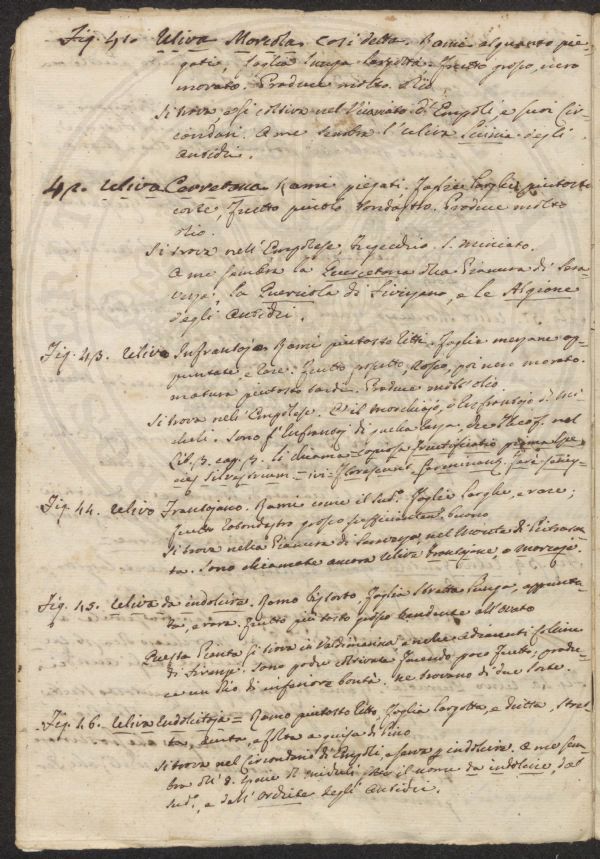 Fig. 41. Uliva Moreola così detta. Rami alquanto pie-
gati, foglia lunga larghetta. Frutto grosso, nero
morato. Produce molto olio
Si trova, e si coltiva nel Vicariato di Empoli, e suoi Cir-
condari. A me sembra l'Uliva Licinia degli
Antichi.
42. Uliva Corretana. Rami piegati. Foglie larghe piutosto
corte, Frutto piccolo tondastro. Produce molto
olio.
Si trova nell'Empolese, Fucecchio. S. Miniato.
A me sembra la Quercetana della Pianura di Sera-
veza, la Querciola di Fivizano, e le
degli Antichi.
Fig. 43. Ulivo Infrantojo. Rami piutosto fitti. Foglie mezane ap-
puntate, e rare. Frutto grosetto, Rosso, poi nero morato.
matura piutosto tardi. Produce molt'olio
Si trova nell'Empolese. È il morchiajo, o Infrantojo di Mi-
cheli. Sono gl'Infrantoj di quella Razza, che Theof. nel
Lib. 3. cap. 3. li chiama copiosa fructificatio
Silvestrium
Fig. 44. Ulivo Frantojano. Rami come il sud.o Foglie larghe, e rare;
Frutto rotondastro grosso sufficientem. buono
Si trova nella Pianura di Seraveza, nel Monte di Pietrasan-
ta. Sono chiamate ancora Ulive frantojane, o morcaje.
Fig. 45. Uliva da indolcire. Ramo distorto. Foglia stretta lunga, appunta-
ta, e rara. Frutto piutosto grosso tendente all'ovato
Questa Pianta si trova in Valdimarina, e nelle adiacenti Colline
di Firenze. Sono poche coltivate, facendo poco frutto, produ-
ce un olio di inferiore bontà. ne trovano di due sorte.
Fig. 46. Uliva Indolcitoja = Ramo piutosto fitto Foglia larghetta, e dritta, stret-
ta, acuta, e folta a guisa di Pino
Si trova nel Circondario di Empoli, e serve p indolcire. A me sem-
bra dell' 8. Specie di Micheli, sotto il nome da indolcire, dal
sud.o, e dall'Orchite degli Antichi.